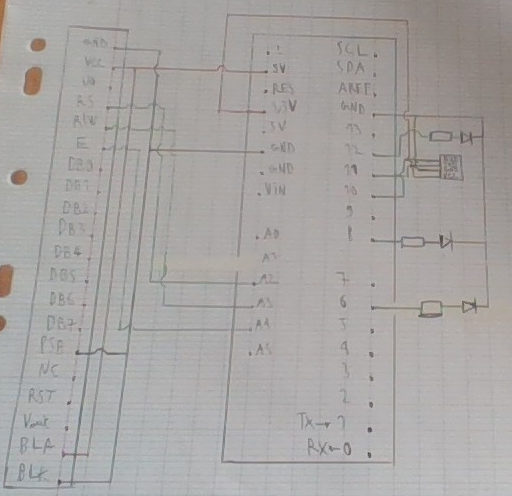 GND
VCC
V0
RS
R/W
E
DB0
DB1
DB2
DB3
DB4
DB5
DB6
DB7
PSB
NC
RST
Vout
BLA
BLK
5V
RES
3,3V
5V
GND
GND
Vin
A0
A1
A2
A3
A4
A5
SCL
SDA
AREF
GND
13
12
11
10
9
8
7
6
5
4
3
2
Tx→1
Rx←0